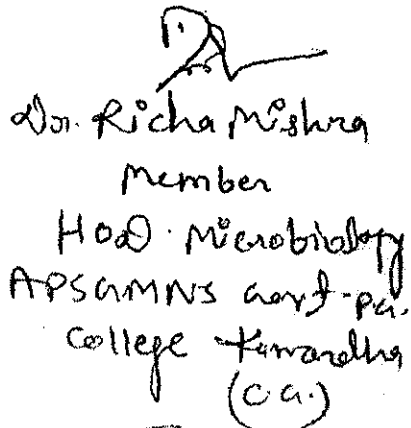 Dr. Richa Mishra
Member
HOD. Microbiology
APSGMNS Govt. PG.
College Kawardha
(C.G.)